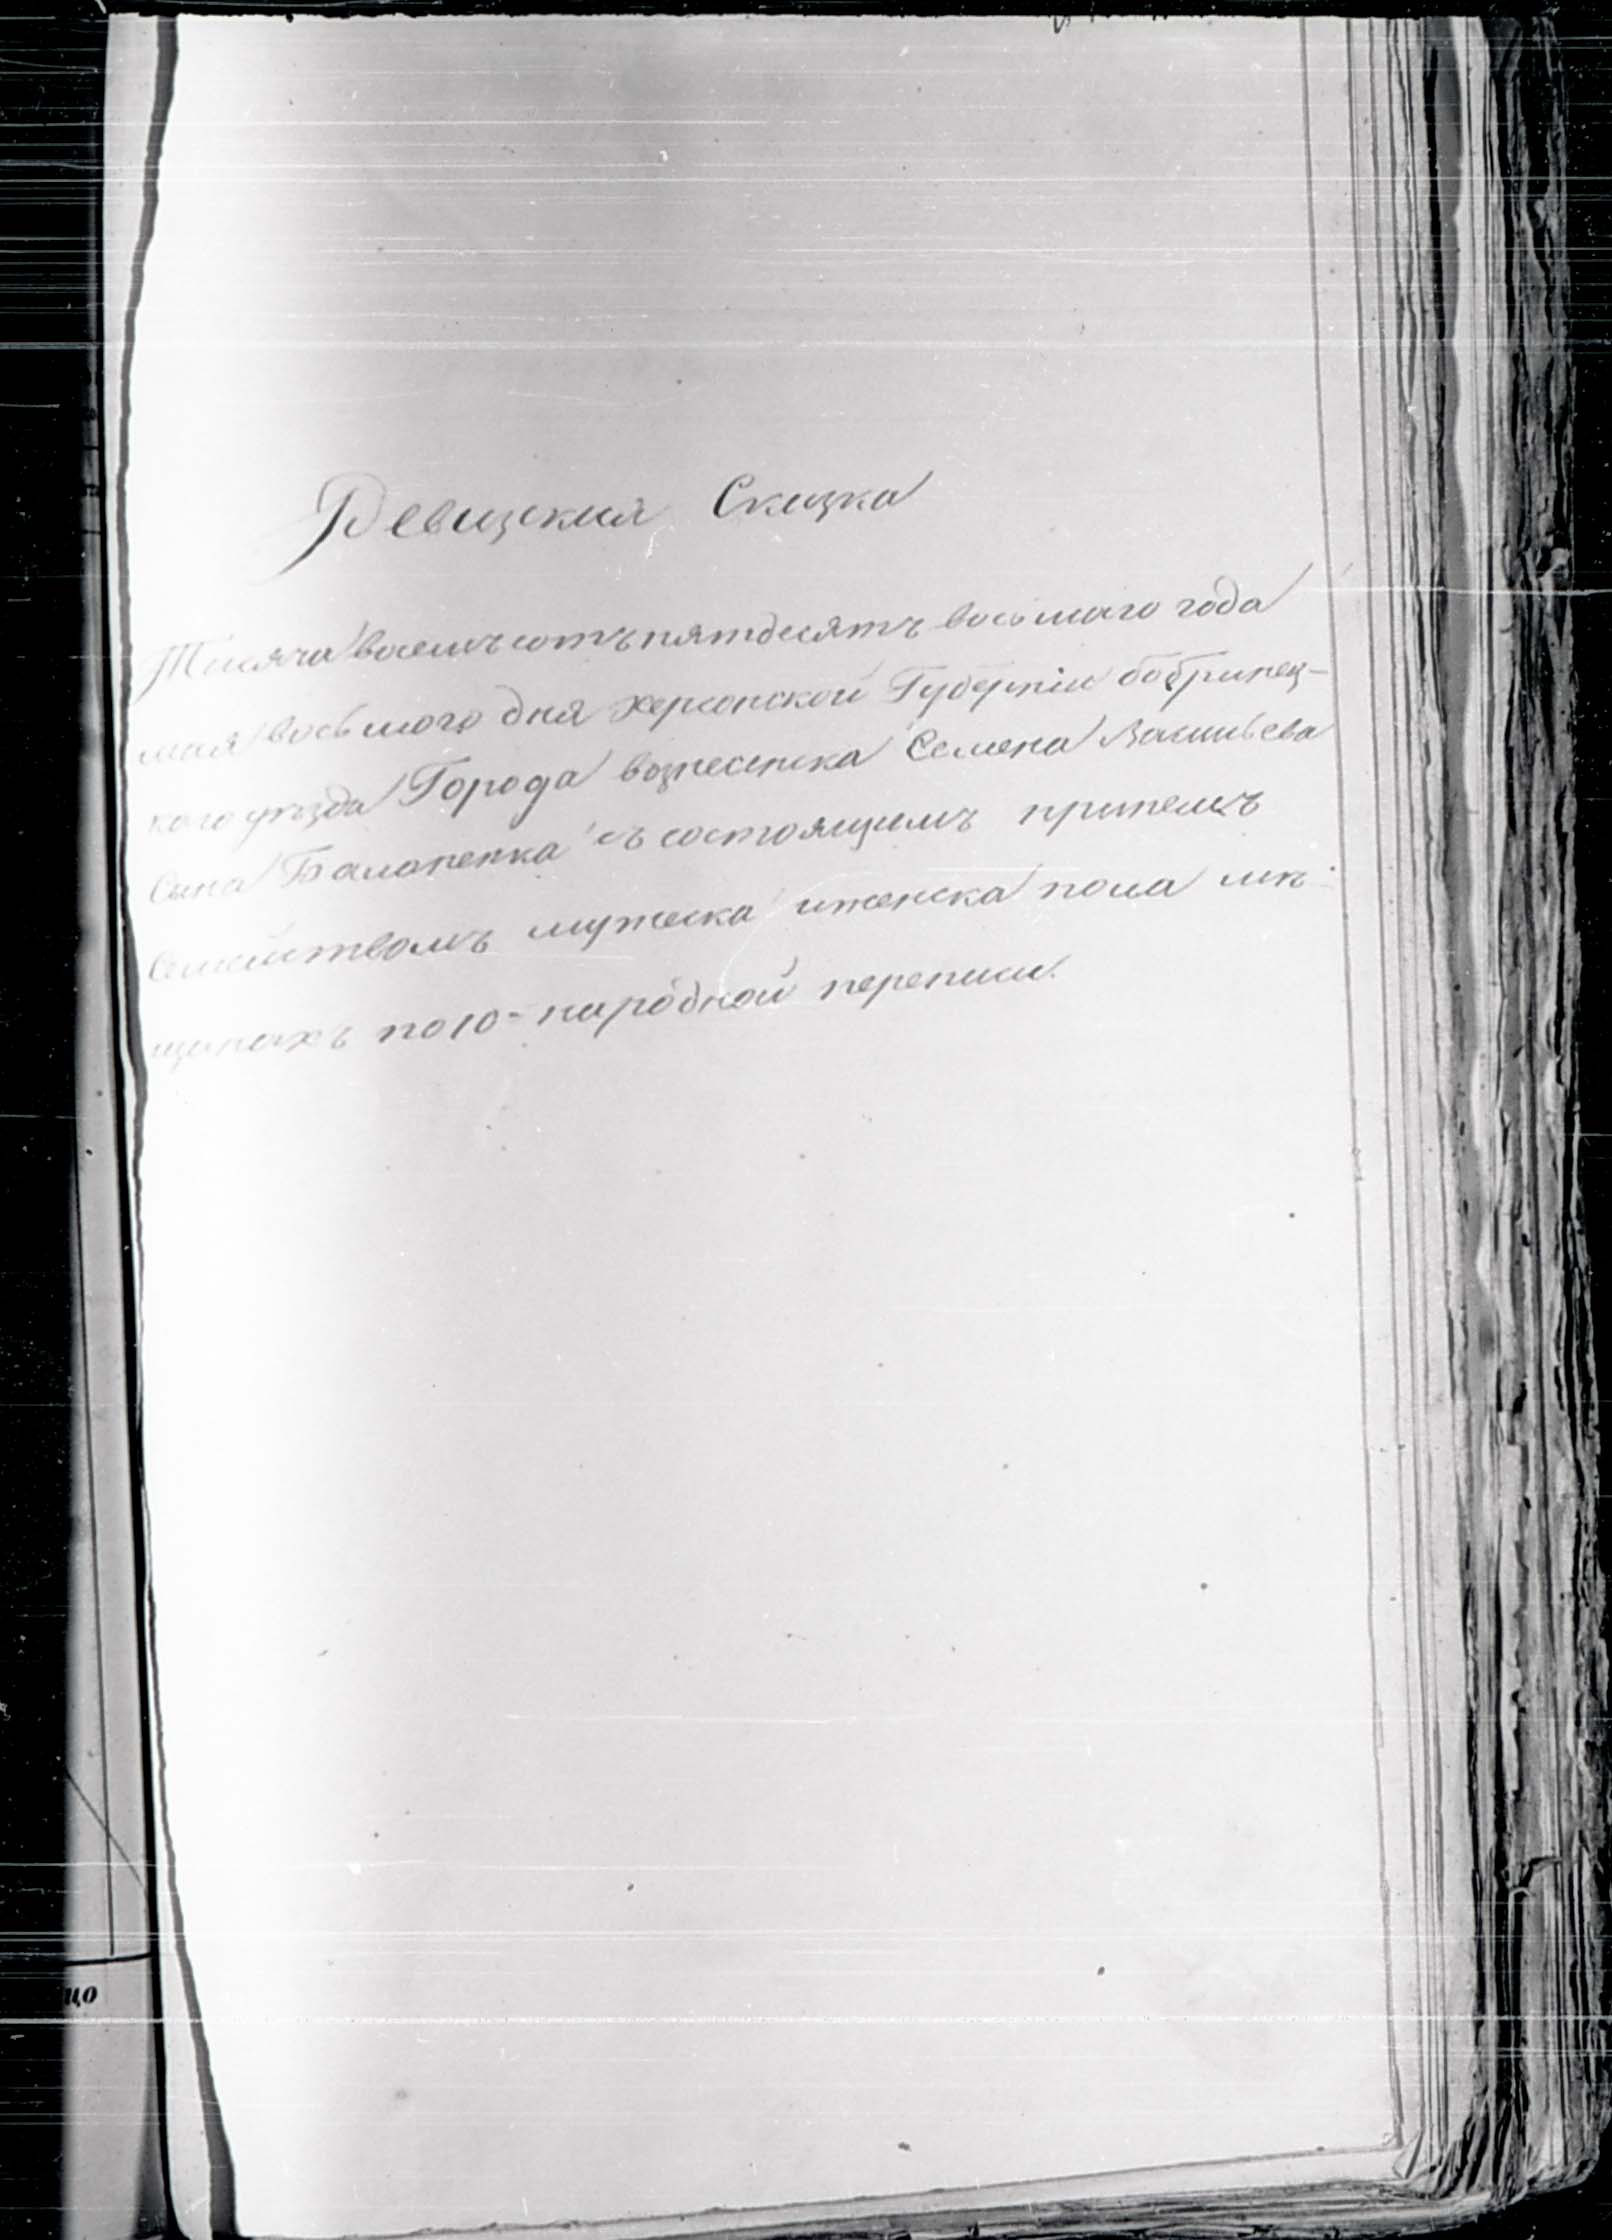 Ревизская Сказка
Тисяча восемъсотъ пятдесятъ восьмаго года
мая восьмого дня херсонской Губерніи бобринец-
кого уѣзда Города вознесенска Семена Васильева
Сына Балоненка съ состоящимъ принемъ
Семействомъ мужеска иженска пола мѣ-
щанахъ по 10-народной переписи.
цо